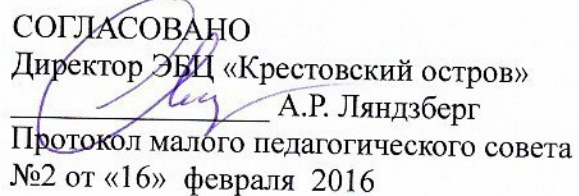 СОГЛАСОВАНО
Директор ЭБЦ «Крестовский остров»
____________________ А.Р. Ляндзберг
Протокол малого педагогического совета
№2 от «16» февраля 2016